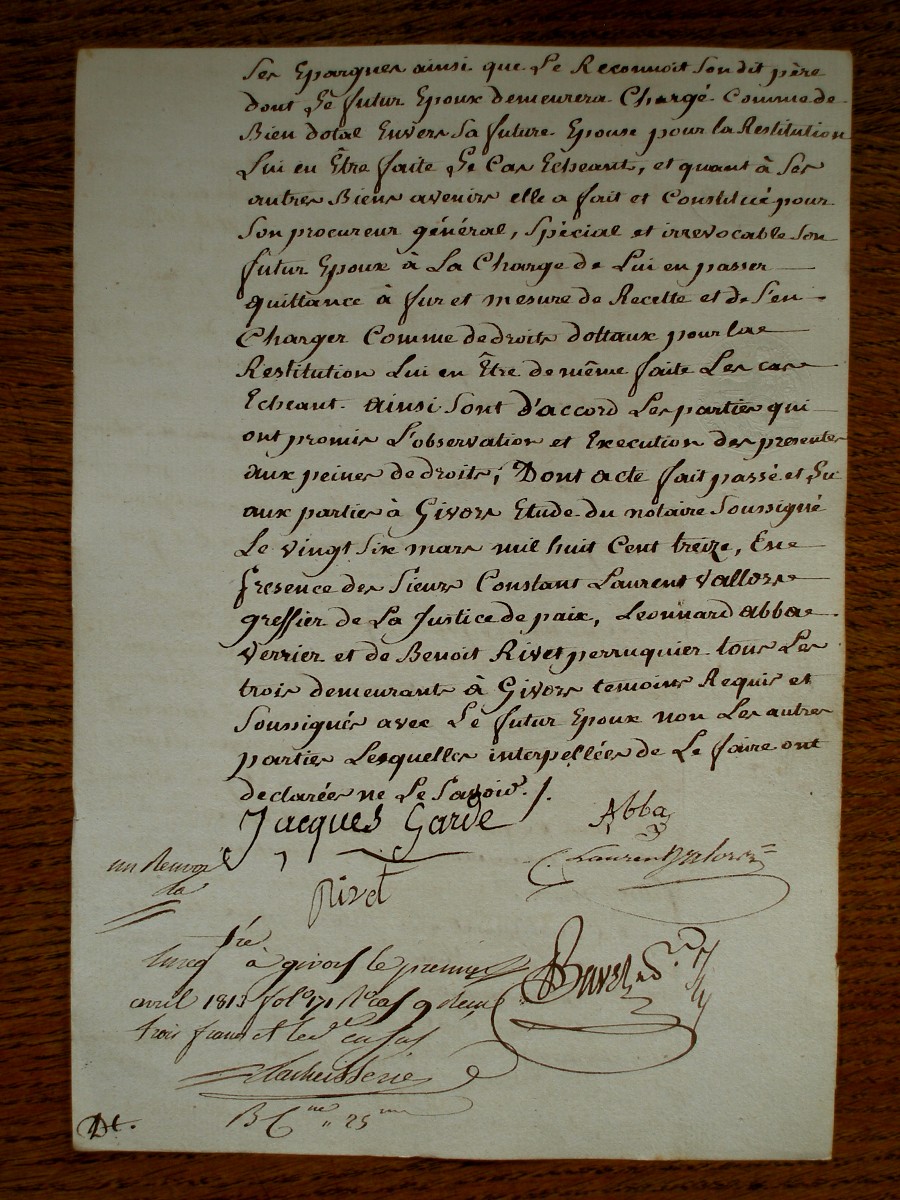 Ses Epargnes ainsi que Le Reconnoit Son dit père
dont Le futur Epoux demeurera Chargé Comme de
Bien dotal Envers Sa future Epouse pour la Restitution
Lui en Être faite Le Cas Echeant, et quant à Ses
autres Biens avenirs elle a fait et Constitué pour
Son procureur général, Spécial et irrevocable Son
futur Epoux à La Charge de Lui en passer
quittance à fur et mesure de Recette et de S'en
Charger Comme de droits dottaux pour la
Restitution Lui en Être de même faite Les cas
Echeant. ainsi Sont d'accord Les parties qui
ont promis L'observation et Execution des presentes
aux peines de droits; Dont acte fait passé et Lu
aux parties à Givors Etude du notaire Soussigné
Le vingt Six mars mil huit Cent treize, En
presence des Sieurs Constant Laurent Vallors
greffier de La Justice de paix, Leonnard abba
Verrier et de Benoit Rivet perruquier tous Les
trois demeurants à Givors temoins Requis et
Soussignés avec Le futur Epoux non Les autres
parties Lesquelles interpellées de Le faire ont
declarées ne Le Savoir ./.
Jacques Garde Abba
un Renvoi
Laurent
Rivet
à givors le premier
avril 1813 fol° 171
trois francs
B 25